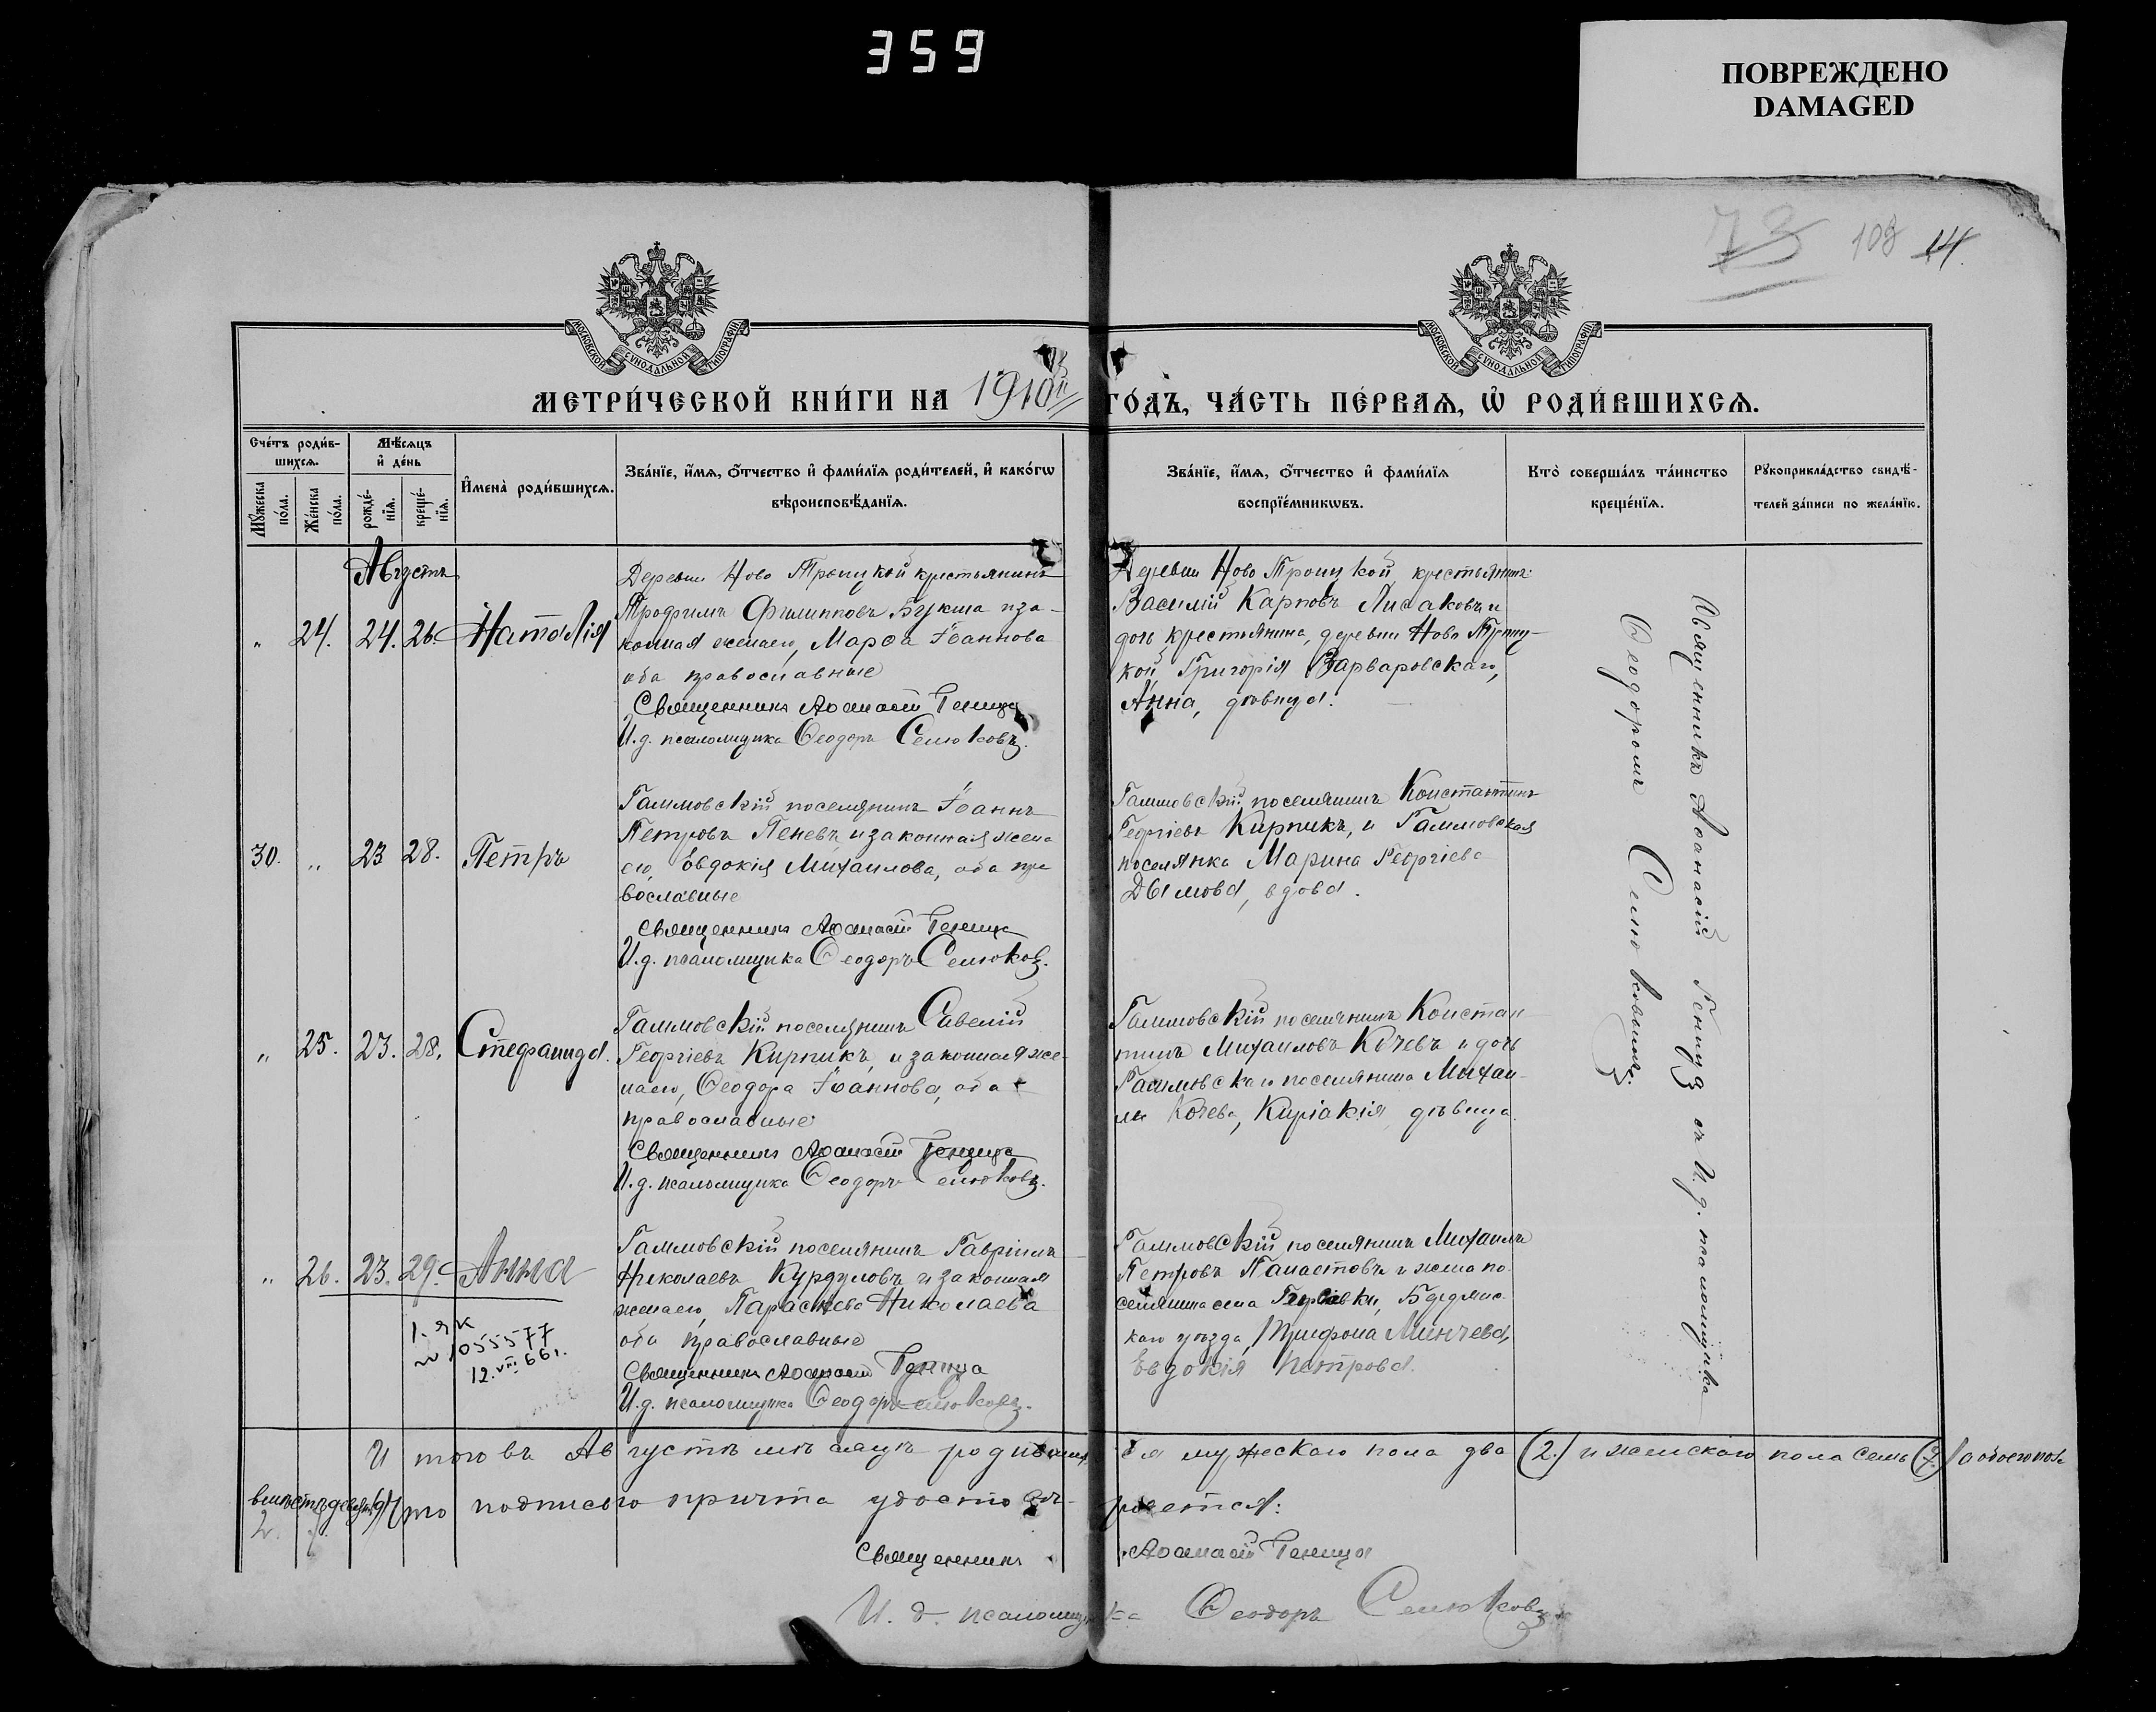 359
ПОВРЕЖДЕНО
DAMAGED
73 108 14.
МОСКОВСКОЙ СѴНОДАЛЬНОЙ ТИПОГРАФІИ
МОСКОВСКОЙ СѴНОДАЛЬНОЙ ТИПОГРАФІИ
МЕТРИ́ЧЕСКОЙ КНИ́ГИ НА 1910й ГО́ДЪ, ЧА́СТЬ ПЕ́РВАѦ, Ѡ҆ РОДИ́ВШИХСѦ.
Сче́тъ роди́в-
шихсѧ.
Мꙋ́жеска
по́ла.
Же́нска
по́ла.
Мѣ́сѧцъ
и҆ де́нь
рожде́-
нїѧ.
креще́-
нїѧ.
И҆мена̀ роди́вшихсѧ.
Зва́нїе, и҆́мѧ, ѻ҆́тчество и҆ фами́лїѧ роди́телей, и҆ како́гѡ
вѣроисповѣ́данїѧ.
Зва́нїе, и҆́мѧ, ѻ҆́тчество и҆ фами́лїѧ
воспрїе́мникѡвъ.
Кто̀ соверша́лъ та́инство
креще́нїѧ.
Рꙋкоприкла́дство свидѣ́-
телей за́писи по жела́нїю.
Августъ
„ 24. 24. 26. Наталія
Деревни Ново Троицкой крестьянинъ
Трофимъ Филипповъ Букша и за-
конная жена его, Марѳа Іоаннова
оба православные
Священникъ Аѳанасій Геница
И.д. псаломщика Ѳеодоръ Селюковъ.
Деревни Ново Троицкой, крестьянинъ
Василій Карповъ Лисаковъ и
дочь крестьянина, деревни Ново Троиц-
кой, Григорія Варваровскаго,
Анна, дѣвица.
30. „ 23 28. Петръ
Гаммовскій поселянинъ Іоаннъ
Петровъ Пеневъ и законная жена
его, Евдокія Михаилова, оба пра
вославные
Священникъ Аѳанасій Геница
И.д. псаломщика Ѳеодоръ Селюковъ.
Гаммовскій поселянинъ Константинъ
Георгіевъ Кирпикъ, и Гаммовская
поселянка Марина Георгіева
Дымова, вдова.
„ 25. 23. 28. Стефанида.
Гаммовскій поселянинъ Савелій
Георгіевъ Кирпикъ, и законная же-
на его, Ѳеодора Іоаннова, оба
православные
Священникъ Аѳанасій Геница
И.д. псаломщика Ѳеодоръ Селюковъ.
Гаммовскій поселянинъ Констан
тинъ Михаиловъ Кочевъ и дочь
Гаммовскаго поселянина Михаи-
ла Кочева, Киріакія, дѣвица.
„ 26. 23. 29. Анна
Гаммовскій поселянинъ Гавріилъ
Николаевъ Курдуловъ и законная
жена его, Параскева Николаева
оба православные
Священникъ Аѳанасій Геница
И.д. псаломщика Ѳеодоръ Селюковъ.
1. ЯК
№ 1055577
12.VIII.66г.
Гаммовскій поселянинъ Михаилъ
Петровъ Панастовъ и жена по-
селянина села Бердянс-
каго уѣзда, Трифона Минчева,
Евдокія Петрова.
Священникъ Аѳанасій Геница съ И.д. псаломщика
Ѳеодоромъ Селюковымъ.
Итого въ Августѣ мѣсяцѣ родившихся мужескаго пола два (2) и женскаго пола семь (7) / а обоего пола
вмѣстѣ девять 9/ что подписью причта удостовѣряется:
Священникъ Аѳанасій Геница
И. д. псаломщика Ѳеодоръ Селюковъ.